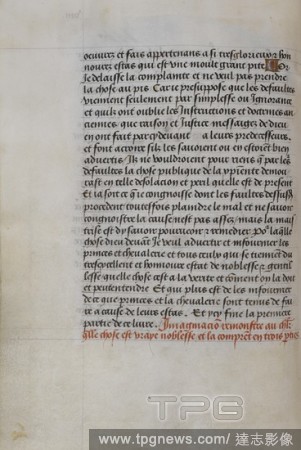 oeuures et fais appertenans a si tresglorieux et hon
nourez estas qui est vne moult grant pite Or
Je delaisse la complainte et ne veul pas prendre
la chose au pis Car ie presuppose que les defaultes
viennent seulement par simplesse ou Ignorance
et quilz ont oublie les Instructions et doctrines an
ciennes que raison et Justice messagiers de dieu
en ont fait par cy deuant a leurs predecesseurs
et sont acertene silz les sauoient ou en estoient bien
aduertis Ilz ne vouldroient pour riens que par les
defaultes la chose publique de la crestiente demou
rast en telle desolacion et peril quelle est de present
Et la soit ce que congnoisse dont les faultes dessusd
procedent touteffois plaindre le mal et ne sauoir
congnoistre la cause nest pas assez mais la mai
strise est dy sauoir pourueoir et remedier Po laqlle
chose dieu deuant Je veul aduertir et Informer les
princes et cheualiers et tous ceulx qui se tiennent du
tresexcellent et honnourable estat de noblesse et gentil
lesse quelle chose cest a la verite et comment on la doit
et peut entendre Et qui plus est de les Informer
de ce que princes et la cheualerie sont tenus de fai
re a cause de leurs estas Et icy fine la premiere
partie de ce liure Ymaginacion remonstre au chlr
qlle chose est vraye noblesse et la comprent en trois pns
TPG
www.tpgnews.com / 達志影像